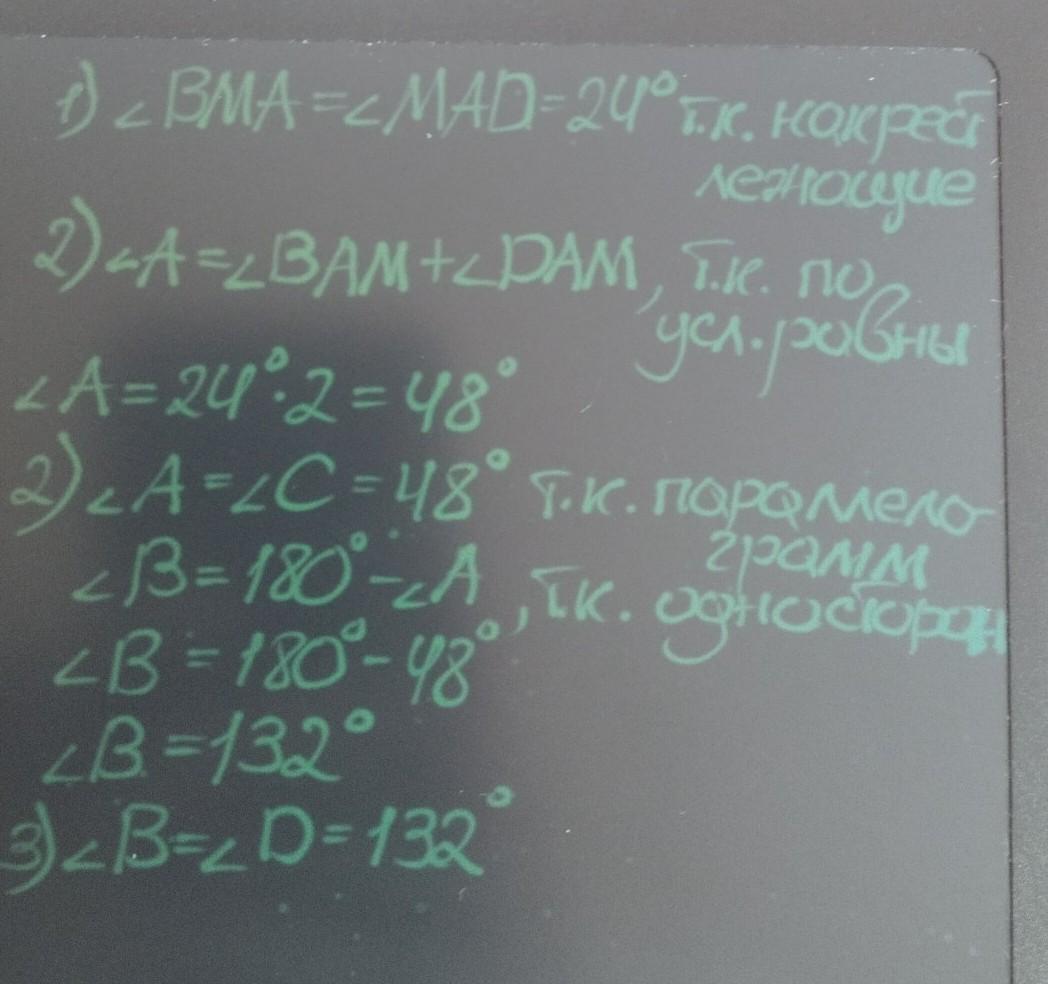 1) ∠BMA = ∠MAD = 24° т.к. накрест
лежащие
2) ∠A = ∠BAM + ∠DAM, т.к. по
усл. равны
∠A = 24° · 2 = 48°
2) ∠A = ∠C = 48° т.к. параллело
грамм
∠B = 180° - ∠A, т.к. односторон
∠B = 180° - 48°
∠B = 132°
3) ∠B = ∠D = 132°